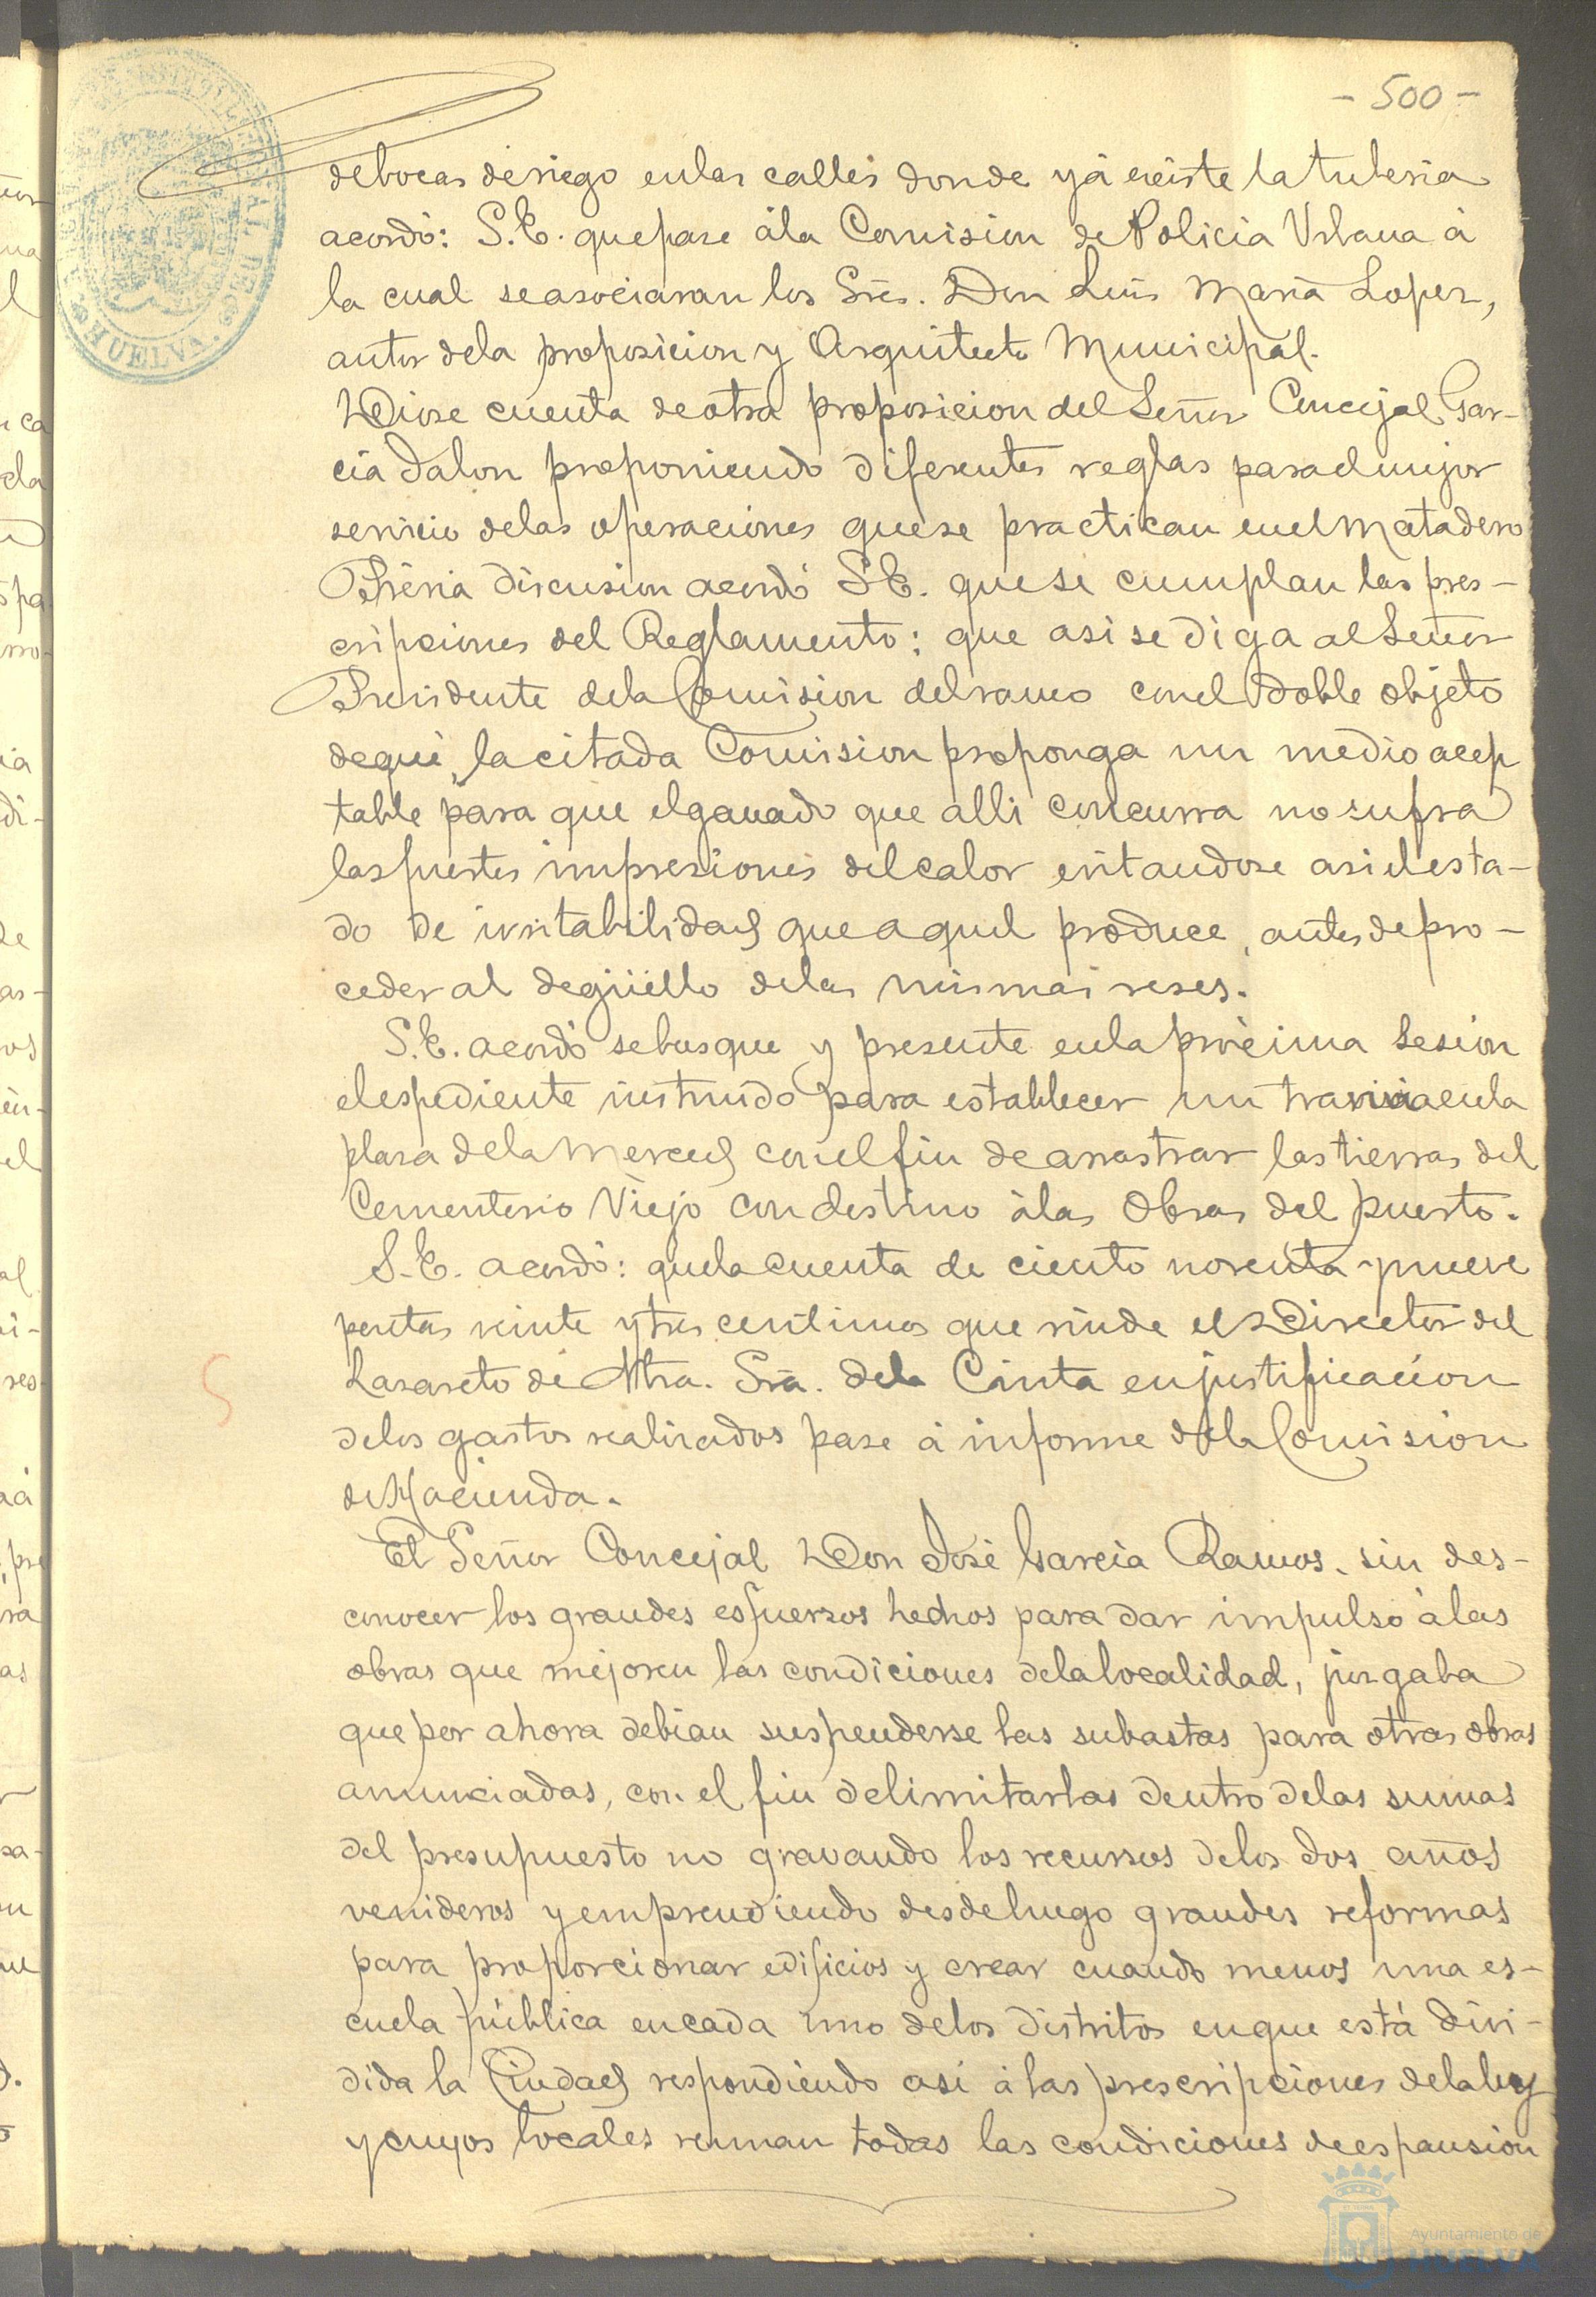 - 500 -
de bocas de riego en las calles donde yá existe la tuberia
acordó: S.E. que pase á la Comision de Policia Urbana á
la cual se asociaran los Sres. Don Luis Maria Lopez,
autor de la proposicion y Arquitecto Municipal.
Diose cuenta de otra proposicion del Señor Concejal Gar-
cia Jalon proponiendo diferentes reglas para el mejor
servicio de las operaciones que se practican en el Matadero
Prévia discusion acordó S.E. que se cumplan las pres-
cripciones del Reglamento; que asi se diga al Señor
Presidente de la Comision del ramo con el doble objeto
de que la citada Comision proponga un medio acep
table para que el ganado que alli concurra no sufra
las fuertes impresiones del calor evitandose asi el esta-
do de irritabilidad que aquel produce, antes de pro-
ceder al degüello de las mismas reses.
S.E. acordó se busque y presente en la próxima Sesion
el espediente instruido para establecer un tranvia en la
plaza de la Merced con el fin de arrastrar las tierras del
Cementerio Viejo con destino á las Obras del puerto.
S.E. acordó: que la cuenta de ciento noventa y nueve
pesetas veinte y tres centimos que rinde el Director del
Lazareto de Ntra. Sra. de la Cinta en justificacion
de los gastos realizados pase á informe de la Comision
de Hacienda.
El Señor Concejal Don José Garcia Ramos, sin des-
conocer los grandes esfuerzos hechos para dar impulso á las
obras que mejoren las condiciones de la localidad, juzgaba
que por ahora debian suspenderse las subastas para otras obras
anunciadas, con el fin de limitarlas dentro de las sumas
del presupuesto no gravando los recursos de los dos años
venideros y emprendiendo desde luego grandes reformas
para proporcionar edificios y crear cuando menos una es-
cuela pública en cada uno de los distritos en que está divi-
dida la Ciudad respondiendo asi á las prescripciones de la ley
y cuyos locales reunan todas las condiciones de espansion
HUELVA
Ayuntamiento de
HUELVA